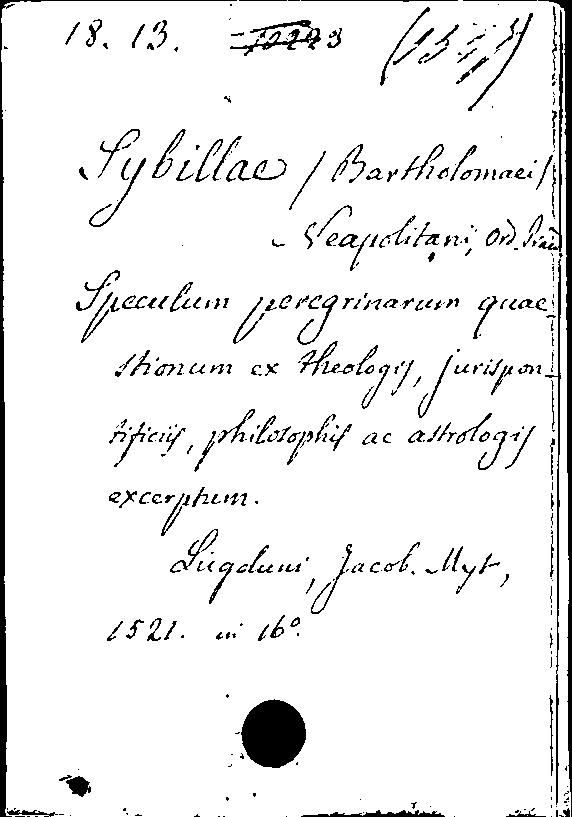 18. 13.
Sybillae / Bartholomaei /
Neapolitani, Ord. Praed
Speculum peregrinarum quae-
stionum ex theologis, jurispon-
tificiis, philosophis ac astrologis
excerptum.
Lugduni, Jacob. Myt,
1521. in 16º.